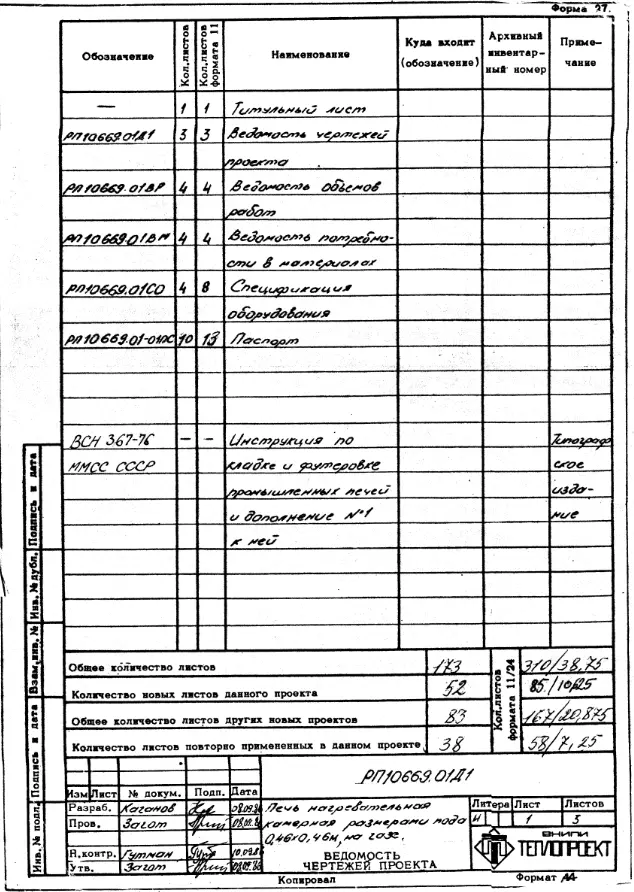 Форма 27.
Обозначение Кол.листов Кол.листов формата 11 Наименование Куда входит (обозначение) Архивный инвентар- ный номер Приме- чание
— 1 1 Титульный лист
РП10669.01Д1 3 3 Ведомость чертежей
проекта
РП10669.01ВР 4 4 Ведомость объемов
работ
РП10669.01ВМ 4 4 Ведомость потребно-
сти в материалах
РП10669.01СО 4 8 Спецификация
оборудования
РП10669.01-01ПС 10 13 Паспорт
ВСН 367-76 — — Инструкция по Типограф
ММСС СССР кладке и футеровке ское
промышленных печей изда-
и дополнение №1 ние
к ней
Общее количество листов 173 Кол.листов формата 11/24 310/38,75
Количество новых листов данного проекта 52 85/10,625
Общее количество листов других новых проектов 83 167/20,875
Количество листов повторно примененных в данном проекте 38 58/7,25
Инв. № подл. Подпись и дата Взам.инв. № Инв. № дубл. Подпись и дата
РП10669.01Д1
Изм Лист № докум. Подп. Дата
Разраб. Каганов
Пров. Загот
Н.контр. Гутман
Утв. Загот
Печь нагревательная
камерная размерами пода
0,46х0,46м, на газе.
ВЕДОМОСТЬ
ЧЕРТЕЖЕЙ ПРОЕКТА
Литера Лист Листов
И 1 3
ВНИПИ
ТЕПЛОПРОЕКТ
Копировал Формат А4